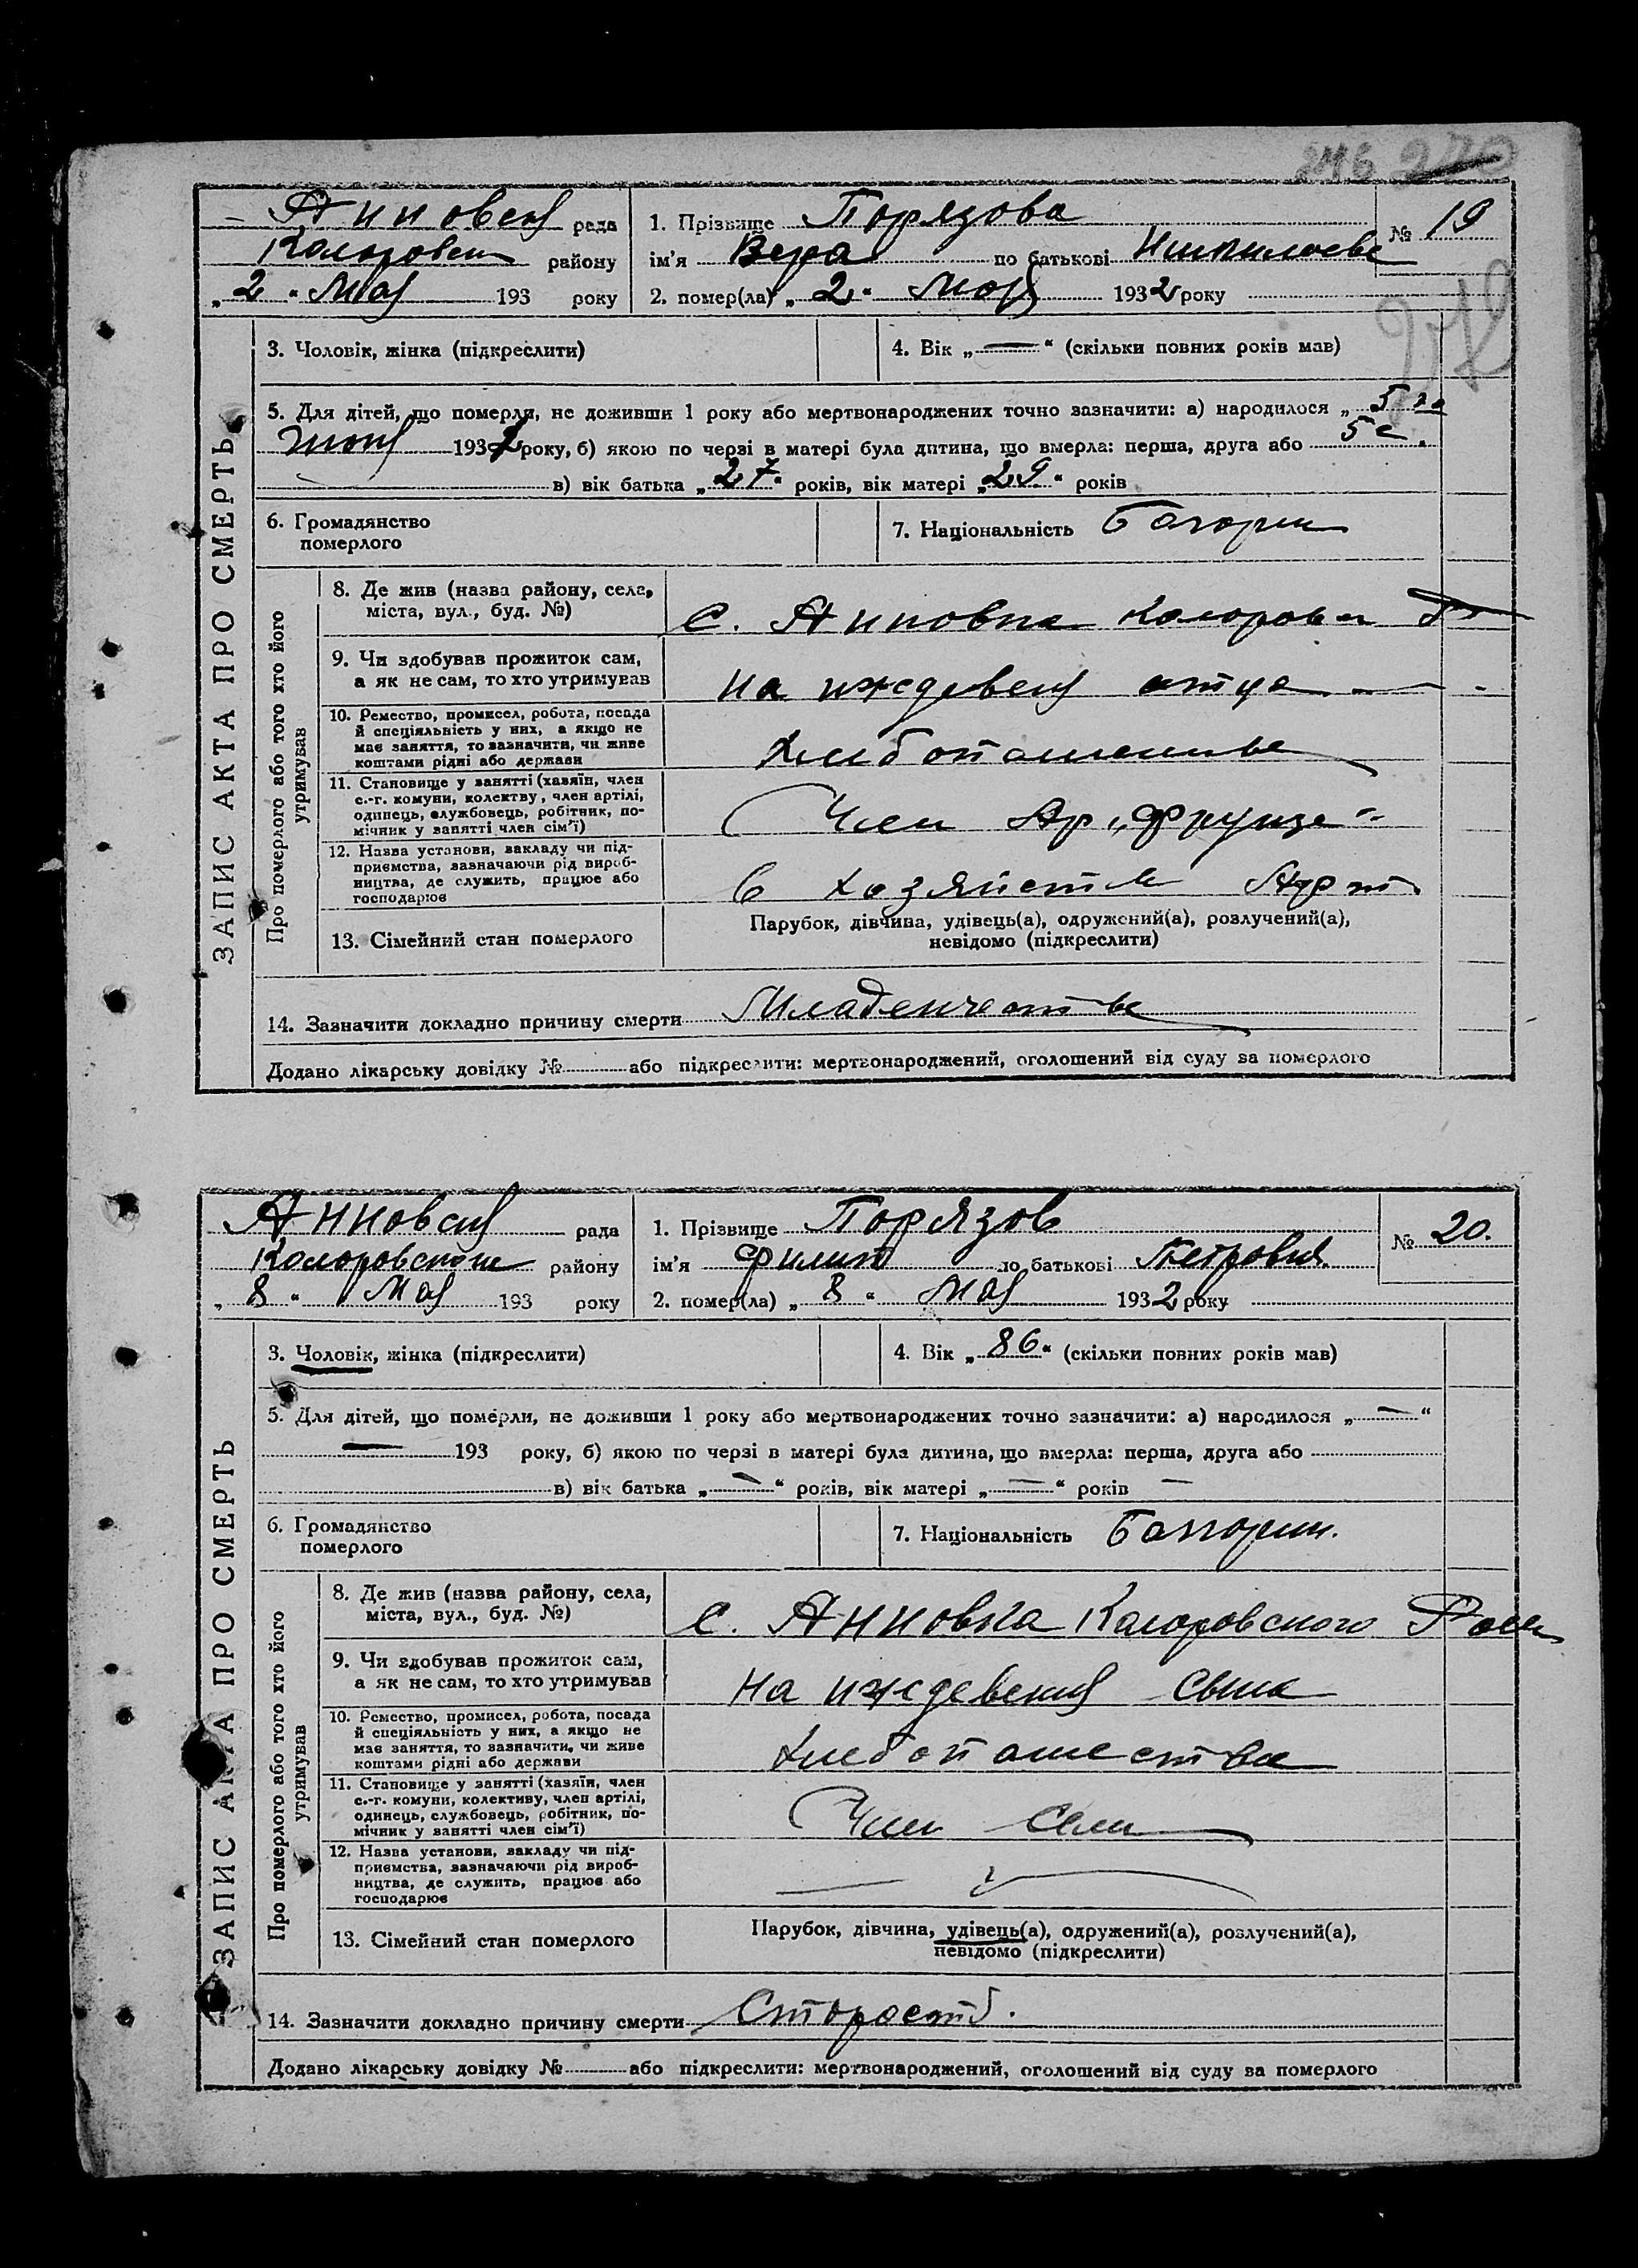 246 270
Анновск рада
1. Прізвище Порязова
№ 19
Коларовск району
ім'я Вера по батькові
„ 2 “ Мая 193 року
2. помер(ла) „ 2 “ Мая 1932 року
ЗАПИС АКТА ПРО СМЕРТЬ
3. Чоловік, жінка (підкреслити)
4. Вік „ — “ (скільки повних років мав)
5. Для дітей, що померли, не доживши 1 року або мертвонароджених точно зазначити: а) народилося „ 5
1932 року, б) якою по черзі в матері була дитина, що вмерла: перша, друга або 5
в) вік батька „ 27 “ років, вік матері „ 29 “ років
6. Громадянство
померлого
7. Національність Болгорин
Про померлого або того хто його
утримував
8. Де жив (назва району, села,
міста, вул., буд. №)
с. Анновка Коларовск
9. Чи здобував прожиток сам,
а як не сам, то хто утримував
на иждевени отца
10. Ремество, промисел, робота, посада
й спеціяльність у них, а якщо не
має заняття, то зазначити, чи живе
коштами рідні або держави
хлебопашества
11. Становище у занятті (хазяїн, член
с.-г. комуни, колектву, член артілі,
одинець, службовець, робітник, по-
мічник у занятті член сім'ї)
Член Ар „Фрунзе“
12. Назва установи, закладу чи під-
приємства, зазначаючи рід вироб-
ництва, де служить, працює або
господарює
в хозяйстве Арт
13. Сімейний стан померлого
Парубок, дівчина, удівець(а), одружений(а), розлучений(а),
невідомо (підкреслити)
14. Зазначити докладно причину смерти Младенчества
Додано лікарську довідку № або підкреслити: мертвонароджений, оголошений від суду за померлого
Анновск рада
1. Прізвище Порязов
№ 20.
Коларовского району
ім'я Филип по батькові Петрович
„ 8 “ Мая 193 року
2. помер(ла) „ 8 “ Мая 1932 року
ЗАПИС АКТА ПРО СМЕРТЬ
3. Чоловік, жінка (підкреслити)
4. Вік „ 86 “ (скільки повних років мав)
5. Для дітей, що померли, не доживши 1 року або мертвонароджених точно зазначити: а) народилося „ — “
— 193 року, б) якою по черзі в матері була дитина, що вмерла: перша, друга або
в) вік батька „ — “ років, вік матері „ — “ років —
6. Громадянство
померлого
7. Національність Болгорин.
Про померлого або того хто його
утримував
8. Де жив (назва району, села,
міста, вул., буд. №)
с. Анновка Коларовского
9. Чи здобував прожиток сам,
а як не сам, то хто утримував
на иждевения сына
10. Ремество, промисел, робота, посада
й спеціяльність у них, а якщо не
має заняття, то зазначити, чи живе
коштами рідні або держави
хлебопашества
11. Становище у занятті (хазяїн, член
с.-г. комуни, колективу, член артілі,
одинець, службовець, робітник, по-
мічник у занятті член сім'ї)
Член Семи
12. Назва установи, закладу чи під-
приємства, зазначаючи рід вироб-
ництва, де служить, працює або
господарює
13. Сімейний стан померлого
Парубок, дівчина, удівець(а), одружений(а), розлучений(а),
невідомо (підкреслити)
14. Зазначити докладно причину смерти Старость.
Додано лікарську довідку № або підкреслити: мертвонароджений, оголошений від суду за померлого